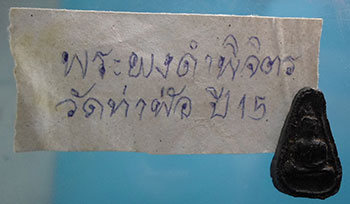 พระผงดำพิจิตร
วัดท่าฬ่อ ปี 15